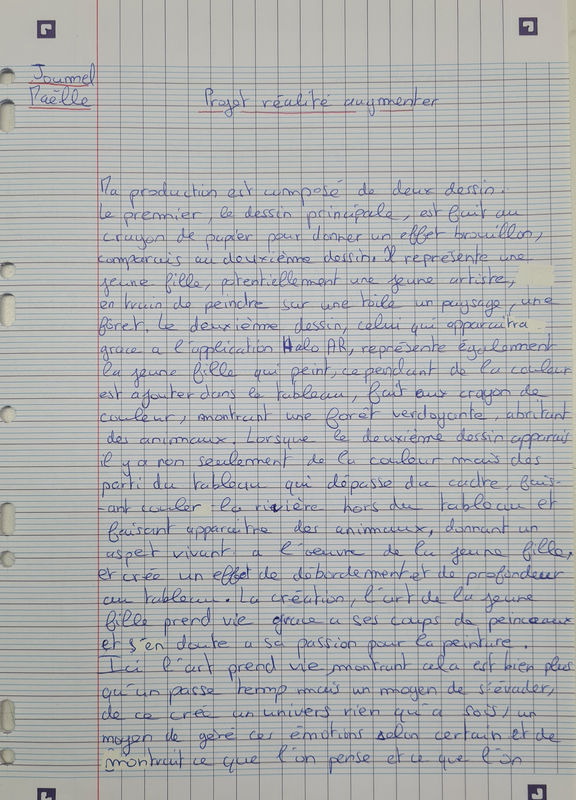 Journel
Maëlle
Projet réalité augmenter
Ma production est composé de deux dessin.
Le premnier, le dessin principale, est fait au
crayon de papier pour donner un effet brouillon,
comparais au deuxième dessin. Il représente une
jeune fille, potentiellement une jeune artiste,
en train de peindre sur une toile un paysage, une
fôret. Le deuxième dessin, celui qui apparaîtra
grace a l'application Halo AR, représente également
la jeune fille qui peint, cependant de la couleur
est ajouter dans le tableau, fait aux crayon de
couleur, montrant une forêt verdoyante, abritant
des animaux. Lorsque le deuxième dessin apparais
il y a non seulement de la couleur mais des
parti du tableau qui dépasse du cadre, fais-
-ant couler la rivière hors du tableau et
faisant apparaitre des animaux, donnant un
aspet vivant a l'oeuvre de la jeune fille,
et crée un effet de débordement et de profondeur
au tableau. La création, l'art de la jeune
fille prend vie grace a ses coups de peinceaux
et s'en doute a sa passion pour la peinture.
Ici l'art prend vie, montrant cela est bien plus
qu'un passe temp mais un moyen de s'évader,
de ce crée un univers rien qu'a sois, un
moyen de géré ces émotions selon certain et de
montrait ce que l'on pense et ce que l'on